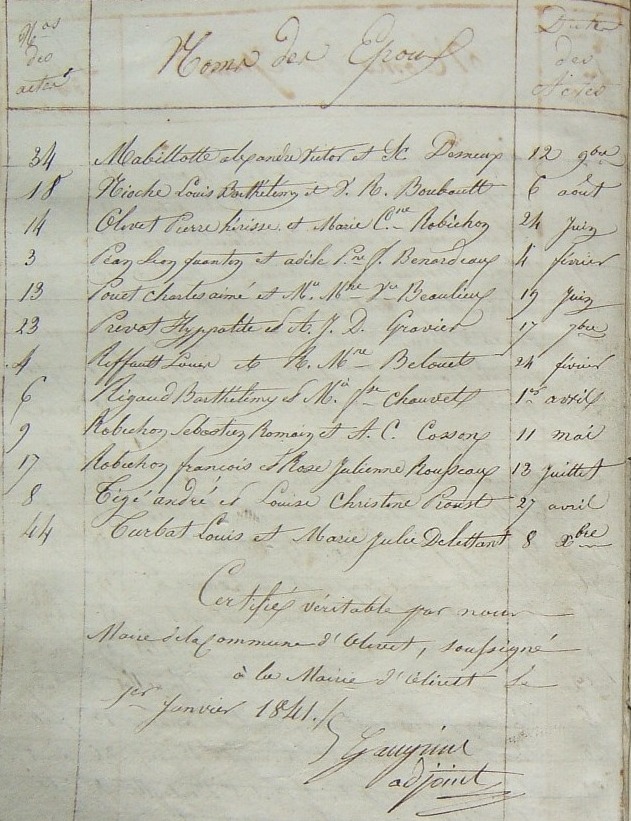 Nos des actes
Noms des Epoux
Dates des Actes
34 Mabillotte alexandre victor et Desneux 12 9bre
18 Nioche Louis Barthélémy et R. Bouboult 6 août
14 Olivet Pierre hérisse et Marie C.ne Robichon 24 Juin
3 Péan Léon et adèle J. Benardeaux 4 février
13 Poret charles aimé et Ma Mhe Beaulieux 19 Juin
23 Prevot Hyppolite et A. J. D. Gravier 17 7bre
4 Riffault Louis et R. Mne Belouet 24 février
6 Rigaud Barthélémy et Ma Chauvet 1er avril
9 Robichon Sébastien Romain et A. C. Cosson 11 mai
17 Robichon françois et Rose Julienne Rousseaux 13 Juillet
8 Tigé andré et Louise Christine Proust 27 avril
44 Turbat Louis et Marie Julie Delettant 8 xbre
Certifié véritable par nous
Maire de la Commune d'Olivet, soussigné
à la Mairie d'Olivet le
1er Janvier 1841./.
adjoint